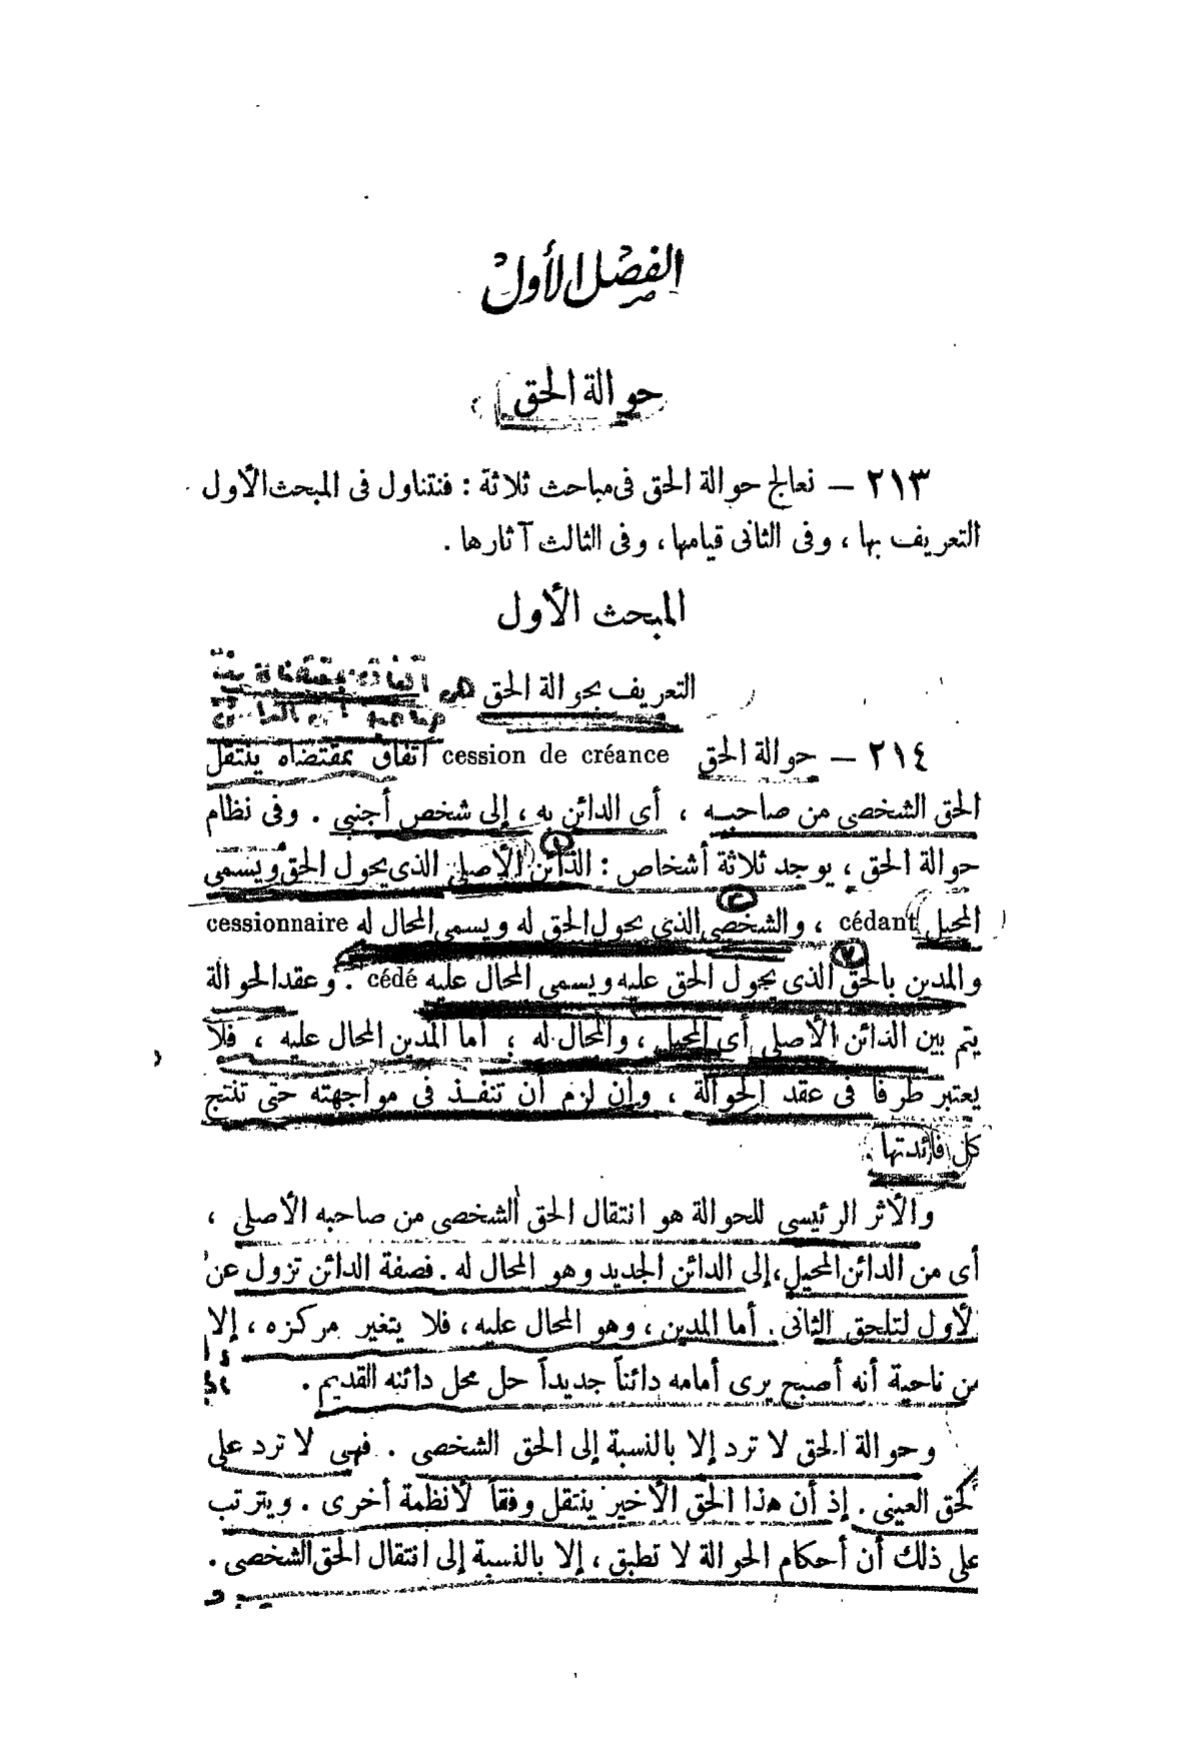 الفصل الأول
حوالة الحق
٢١٣ — نعالج حوالة الحق فى مباحث ثلاثة : فنتناول فى المبحث الأول
التعريف بها ، وفى الثانى قيامها ، وفى الثالث آثارها .
المبحث الأول
التعريف بحوالة الحق هى اتفاق بمقتضاه
٢١٤ — حوالة الحق cession de créance اتفاق بمقتضاه ينتقل
الحق الشخصى من صاحبه ، أى الدائن به ، إلى شخص أجنبى . وفى نظام
حوالة الحق ، يوجد ثلاثة أشخاص : الدائن الأصلى الذى يحول الحق ويسمى
المحيل cédant ، والشخص الذى يحول الحق له ويسمى المحال له cessionnaire
والمدين بالحق الذى يحول الحق عليه ويسمى المحال عليه cédé . وعقد الحوالة
يتم بين الدائن الأصلى أى المحيل ، والمحال له ؛ أما المدين المحال عليه ، فلا
يعتبر طرفا فى عقد الحوالة ، وإن لزم أن تنفـذ فى مواجهته حتى تنتج
كل فائدتها .
والأثر الرئيسى للحوالة هو انتقال الحق الشخصى من صاحبه الأصلى ،
أى من الدائن المحيل ، إلى الدائن الجديد وهو المحال له . فصفة الدائن تزول عن
الأول لتلحق الثانى . أما المدين ، وهو المحال عليه ، فلا يتغير مركزه ، إلا
من ناحية أنه أصبح يرى أمامه دائناً جديداً حل محل دائنه القديم .
وحوالة الحق لا ترد إلا بالنسبة إلى الحق الشخصى . فهى لا ترد على
الحق العينى . إذ أن هذا الحق الأخير ينتقل وفقاً لأنظمة أخرى . ويترتب
على ذلك أن أحكام الحوالة لا تطبق ، إلا بالنسبة إلى انتقال الحق الشخصى .